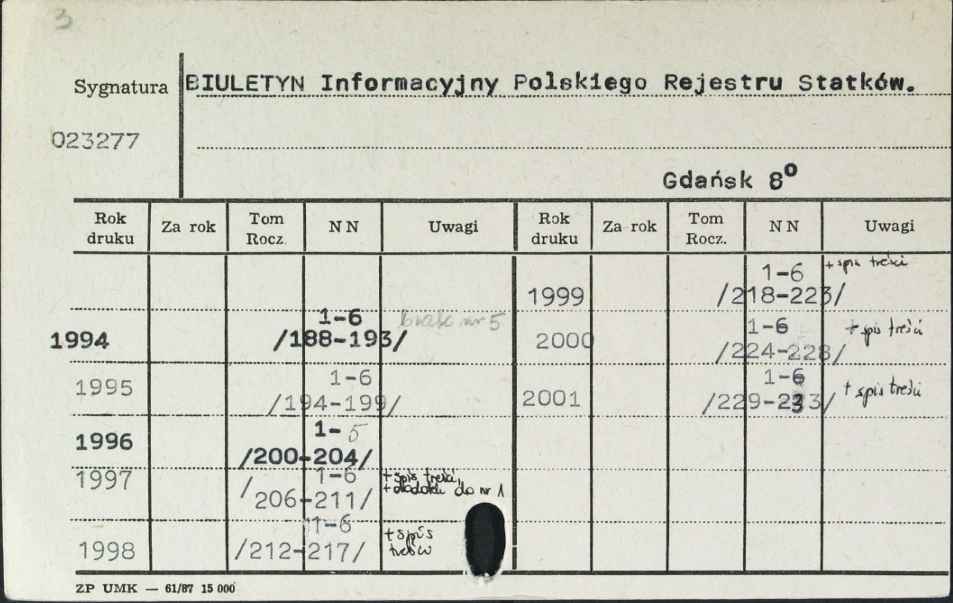 3
Sygnatura BIULETYN Informacyjny Polskiego Rejestru Statków.
023277
Gdańsk 8⁰
Rok druku Za rok Tom Rocz. NN Uwagi Rok druku Za rok Tom Rocz. NN Uwagi
1999 1-6 /218-223/ + spis treści
1994 1-6 /188-193/ brak nr 5 2000 1-6 /224-228/ + spis treści
1995 1-6 /194-199/ 2001 1-6 /229-233/ + spis treści
1996 1-5 /200-204/
1997 1-6 /206-211/ + spis treści, + dodatki do nr 1
1998 1-6 /212-217/ + spis treści
ZP UMK — 61/87 15 000